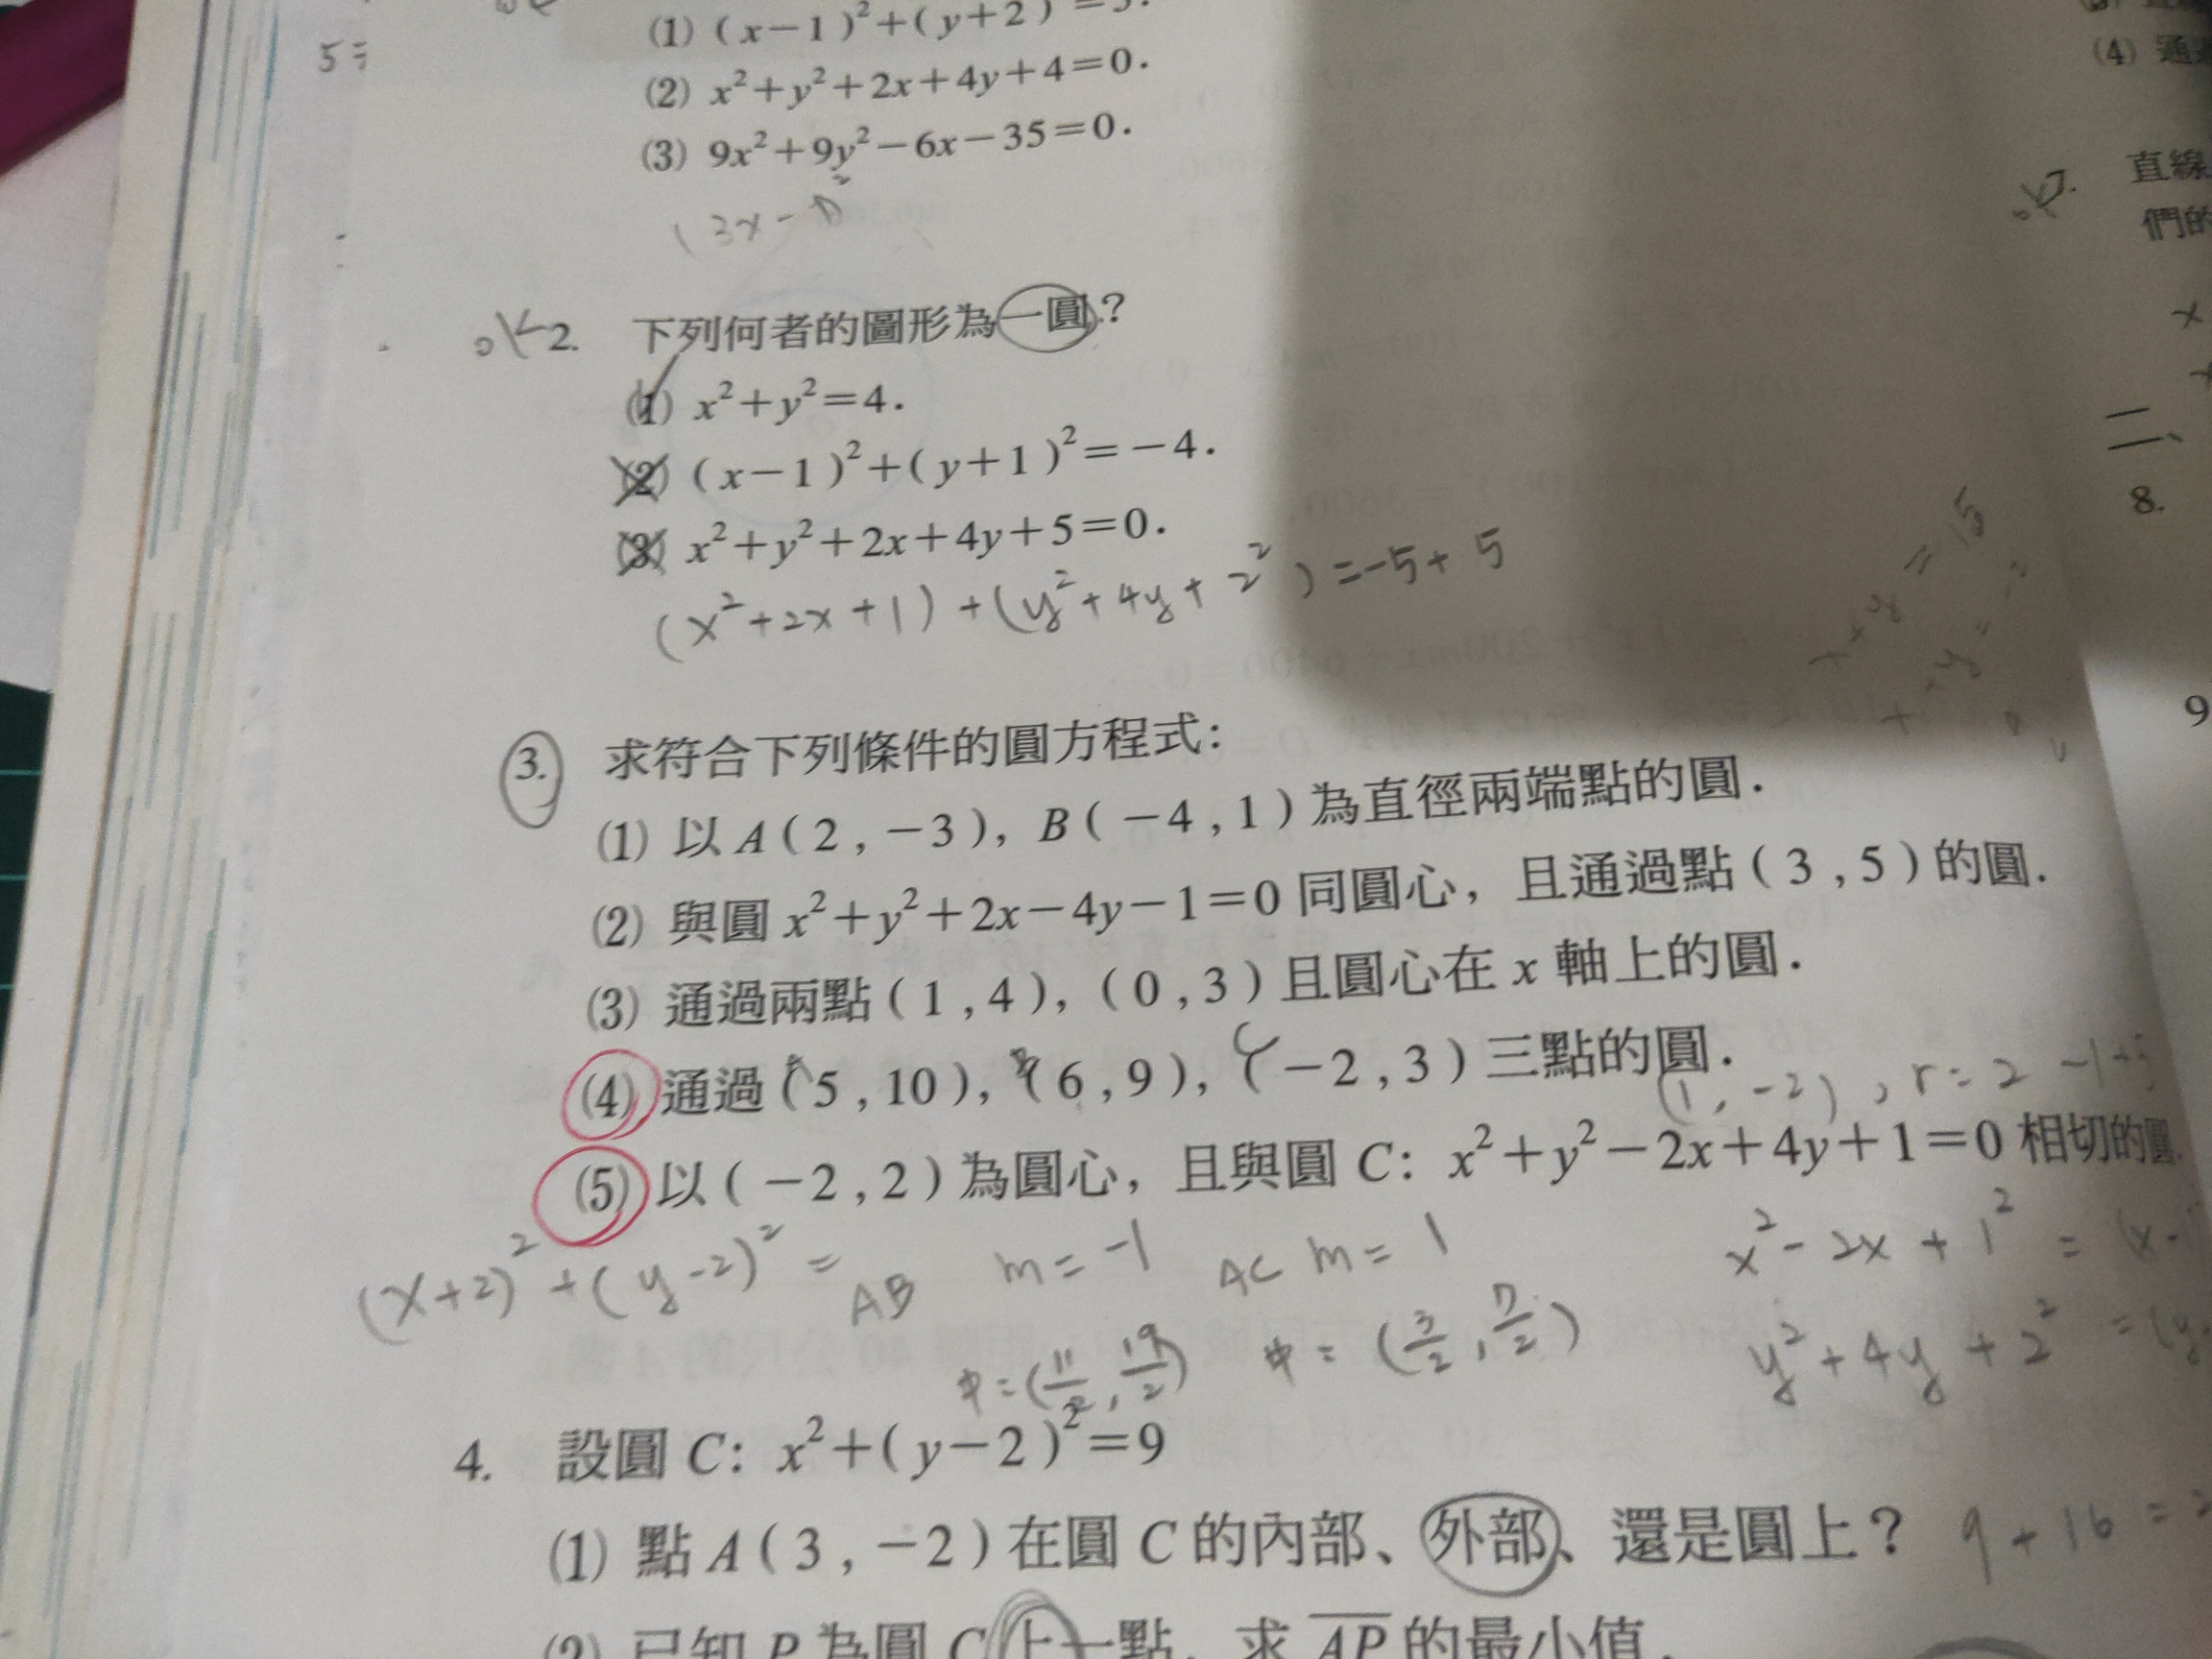 (1) (x−1)²+(y+2)
5=
(2) x²+y²+2x+4y+4=0.
(4) 通
(3) 9x²+9y²−6x−35=0.
(3x-1)²
ok 7. 直線
們的
ok 2. 下列何者的圖形為一圓?
(1) x²+y²=4.
(2) (x−1)²+(y+1)²=−4.
二、
8.
(3) x²+y²+2x+4y+5=0.
(x²+2x+1)+(y²+4y+2²)=-5+5
9
3. 求符合下列條件的圓方程式:
(1) 以 A(2,−3), B(−4,1)為直徑兩端點的圓.
(2) 與圓 x²+y²+2x−4y−1=0 同圓心, 且通過點(3,5)的圓.
(3) 通過兩點(1,4), (0,3)且圓心在 x 軸上的圓.
(4) 通過(5,10), (6,9), (−2,3)三點的圓.
(1,-2), r=2
(5) 以(−2,2)為圓心, 且與圓 C: x²+y²−2x+4y+1=0 相切的圓.
(x+2)²+(y-2)²= AB m=-1 AC m=1 x²-2x+1²=(x-1
中=(11/2,19/2) 中=(3/2,7/2) y²+4y+2²=(y
4. 設圓 C: x²+(y−2)²=9
(1) 點 A(3,−2)在圓 C 的內部、外部、還是圓上? 9+16=
(2) 已知 P 為圓 C 上一點, 求 AP 的最小值.